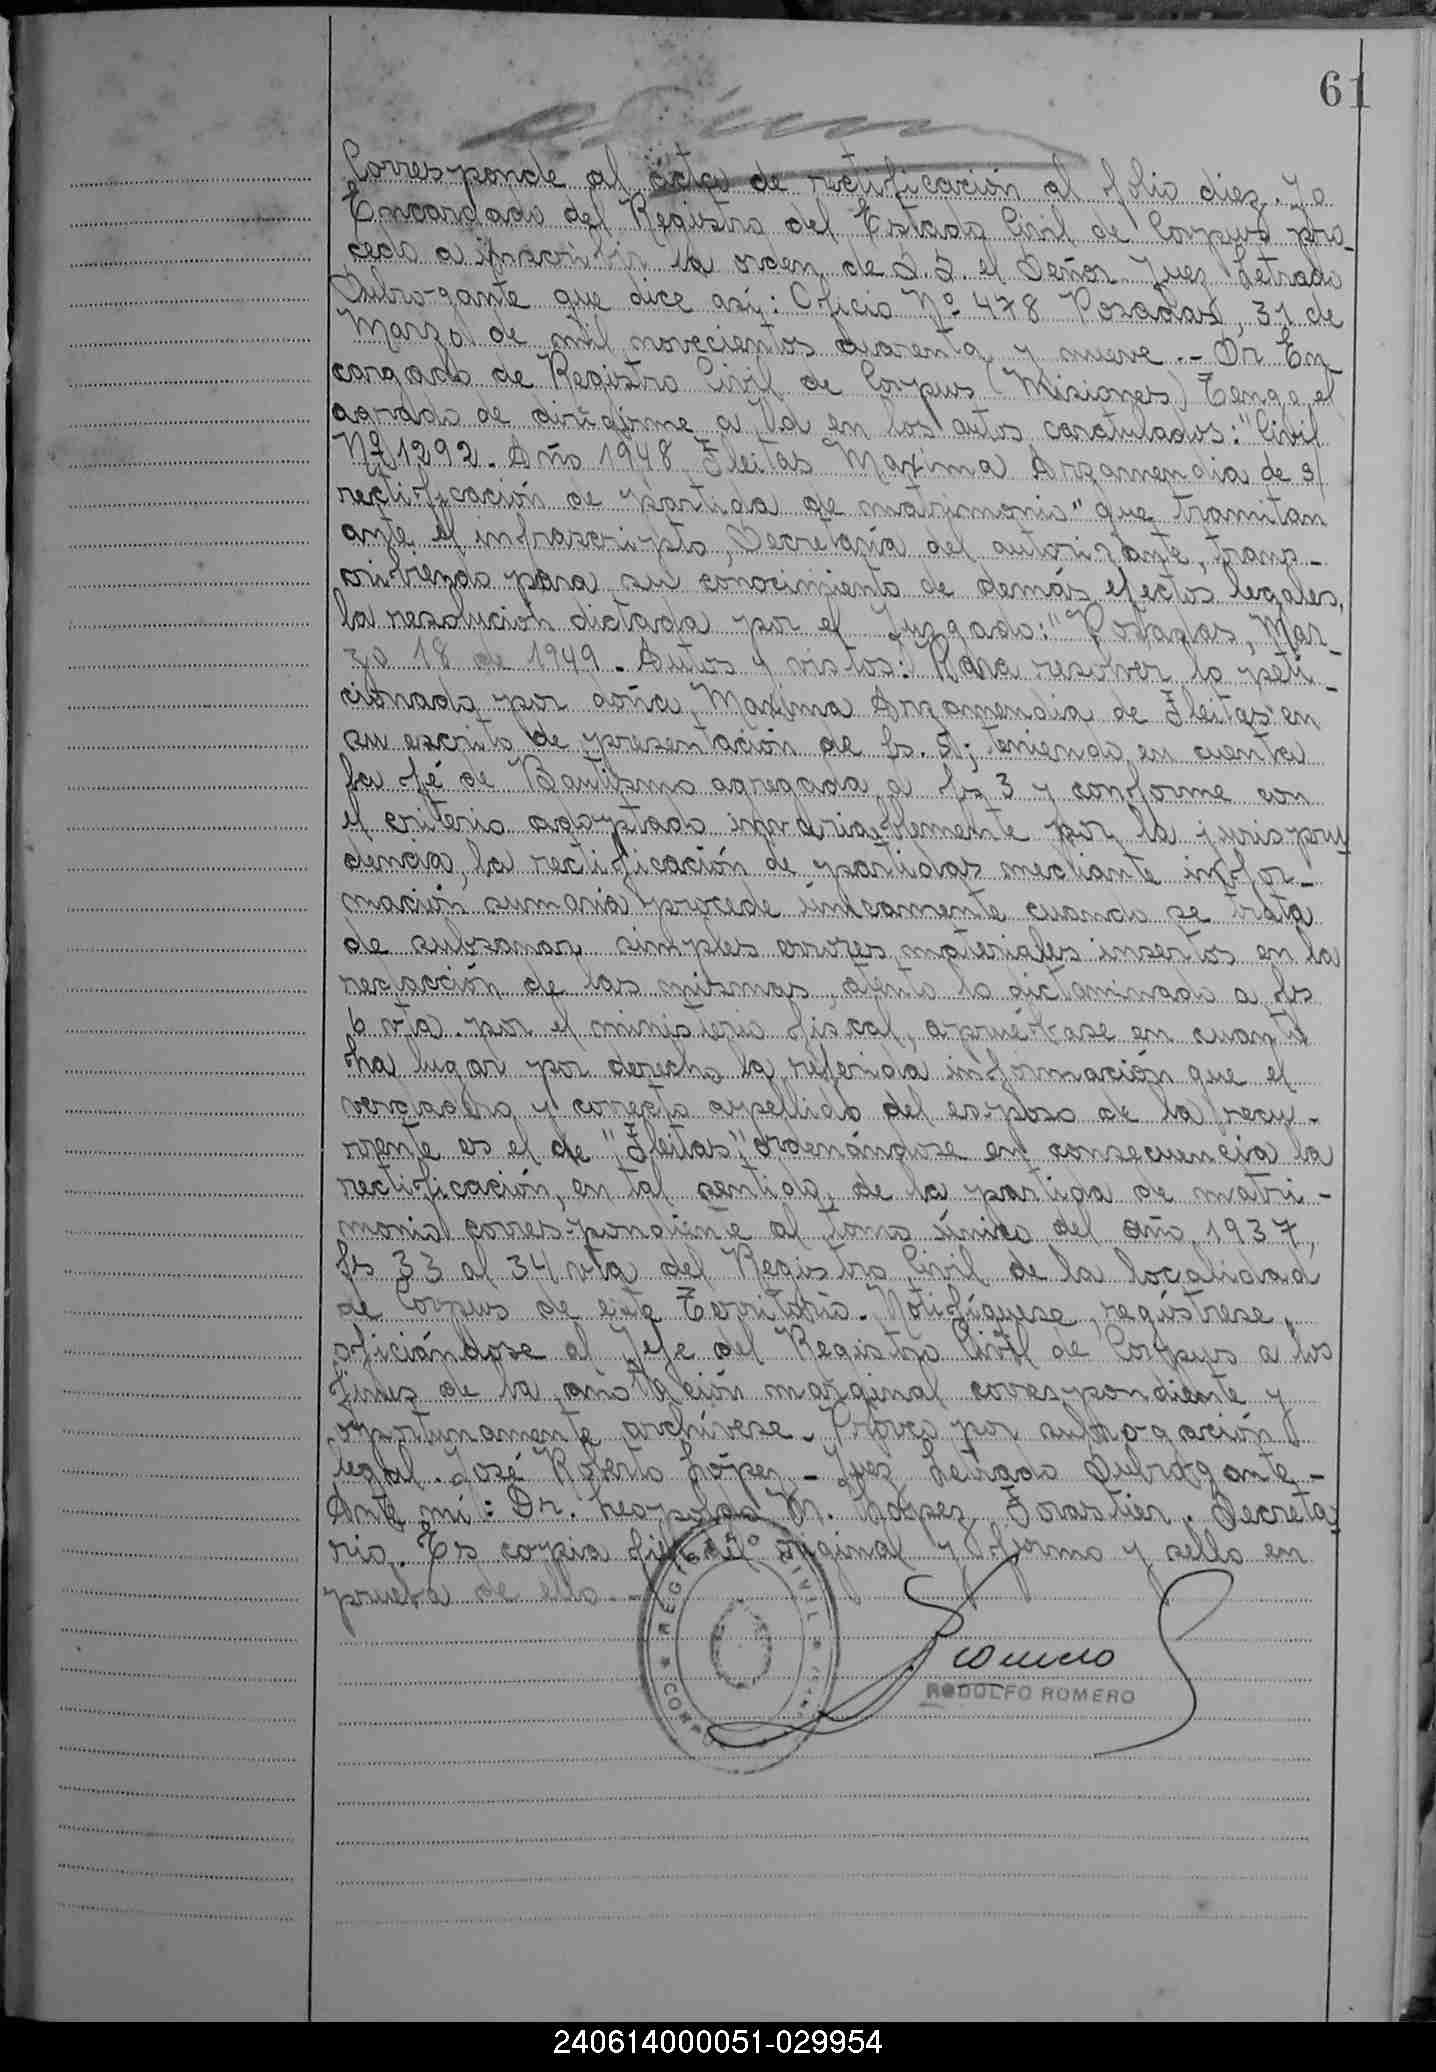 61
Corresponde al acta de rectificación al folio diez. Yo
Encardado del Registro del Estado Civil de Corpus pro-
cedo a inscribir la orden de S S. el Señor Juez Letrado
Subrogante que dice así: Oficio Nº 478 Posadas, 31 de
Marzo de mil novecientos cuarenta y nueve .- Sr En
cargado de Registro Civil de Corpus (Misiones) Tengo el
agrado de dirigirme a Vd en los autos caratulados: "Civil
Nº 1292. Año 1948 Fleitas Maxima Arzamendia de s/
rectificación de partida de matrimonio" que tramitan
ante el infrascripto, Secretaría del autorizante, trans-
cribiendo para su conocimiento de demás efectos legales,
la resolución dictada por el Juzgado: "Posadas, Mar-
zo 18 de 1949. Autos y vistos: Para resolver lo peti-
cionado por doña Maxima Arzamendia de Fleitas en
su escrito de presentación de fs. 5; teniendo en cuenta
la fé de Bautismo agregada a fs 3 y conforme con
el criterio adoptado invariablemente por la jurispru
dencia, la rectificación de partidas mediante infor-
mación sumaria procede únicamente cuando se trata
de subsanar simples errores materiales insertos en la
redacción de las mismas, atento lo dictaminado a fs
6 vta. por el ministerio fiscal, apruébase en cuanto
ha lugar por derecho la referida información que el
verdadero y correcto apellido del esposo de la recu-
rrente es el de "Fleitas", ordenándose en consecuencia la
rectificación, en tal sentido, de la partida de matri-
monio correspondiente al tomo único del año 1937,
fs 33 al 34 vta del Registro Civil de la localidad
de Corpus de este Territorio. Notifíquese, regístrese,
oficiándose al Jefe del Registro Civil de Corpus a los
fines de la anotación marginal correspondiente y
oportunamente archívese. Proveo por subrogación
legal. José Roberto López - Juez Letrado Subrogante -
Ante mí: Dr. Leopoldo M. López Forastier. Secreta-
rio. Es copia fiel del original y firmo y sello en
prueba de ello. -
REGISTRO CIVIL
CORPUS
Romero
RODOLFO ROMERO
240614000051-029954